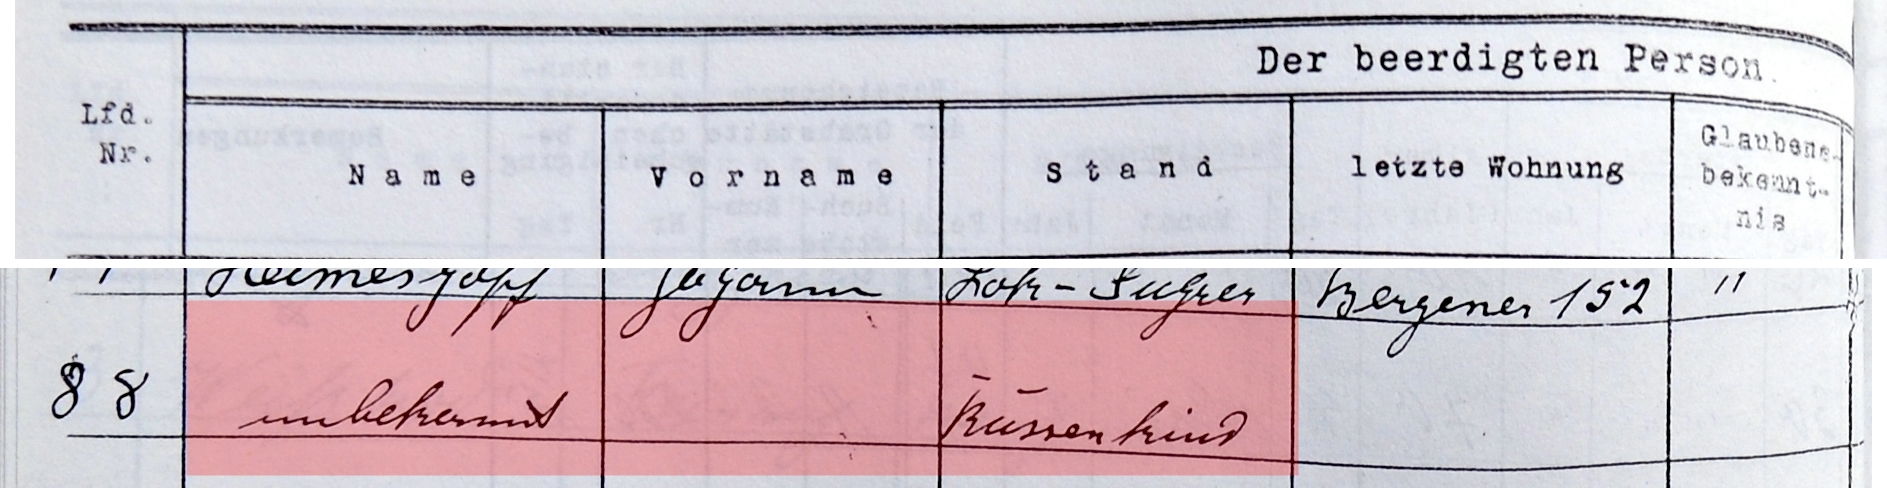 Der beerdigten Person.
Lfd.
Nr.
Name Vorname Stand letzte Wohnung Glaubens-
bekennt-
nis
Johann Lok- Bergener 152 "
88 unbekannt Russenkind